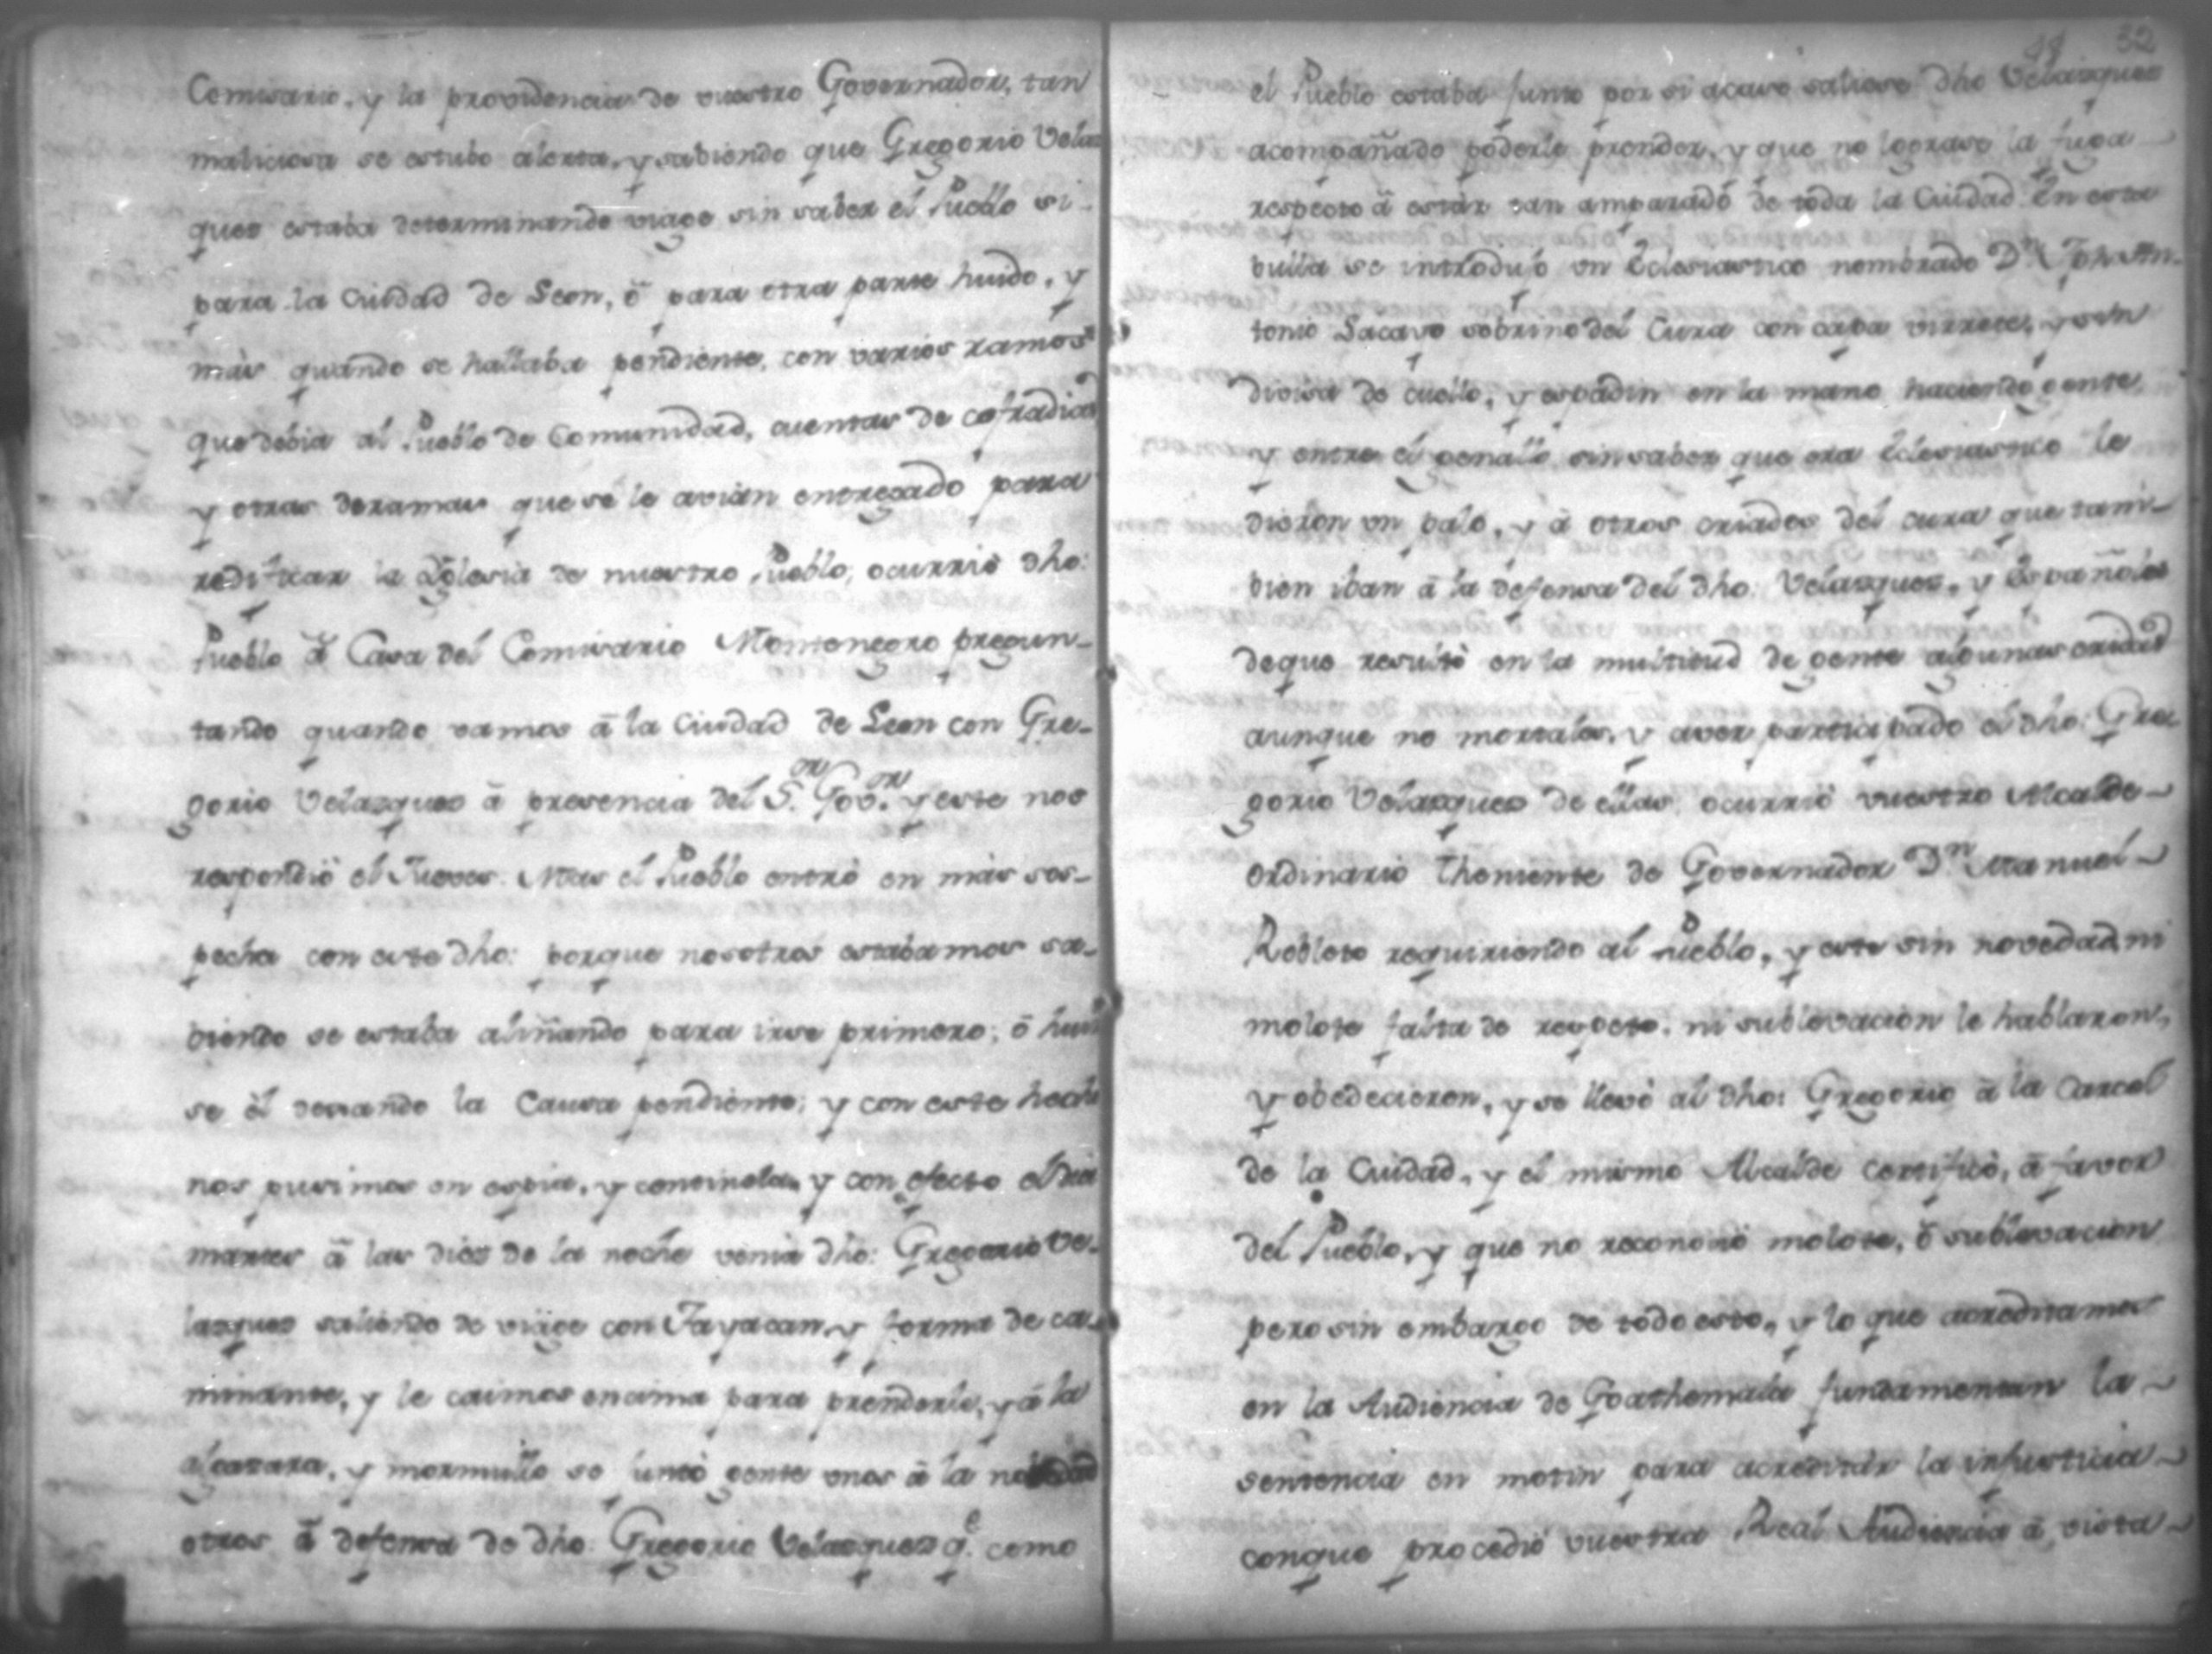 Comisario, y la providencia de vuestro Governador, tan
maliciosa se estubo alerta, y sabiendo que Gregorio Velas
ques estaba determinando viage sin saber el Pueblo si-
para la Ciudad de Leon, ó para otra parte huido, y
más quando se hallaba pendiente, con varios ramos
que debia al Pueblo de Comunidad, cuentas de cofradias
y otras deramas que se le avian entregado para
redificar la Yglesia de nuestro Pueblo, ocurrió dho:
Pueblo á Casa del Comisario Montenegro pregun-
tando quando vamos á la Ciudad de Leon con Gre-
gorio Velasques á presencia del S.or Gov.or y este nos
respondió el Jueves. Mas el Pueblo entró en más sos-
pecha con este dho: porque nosotros estabamos sa-
biendo se estaba aliñando para irse primero; ó huir
se él dexando la Causa pendiente; y con este hecho
nos pusimos en espia, y centinela, y con efecto el Dia
martes á las diez de la noche venia dho: Gregorio Ve-
lasques saliendo de viage con Tayacan, y forma de ca-
minante, y le caimos encima para prenderle, y á la
algazara, y mormullo se juntó gente unos á la
otros á defensa de dho: Gregorio Velasques q.e como
32
el Pueblo estaba junto por si acaso saliese dho Velasques
acompañado poderle prender, y que no lograse la fuga
respecto á estár tan amparado de toda la Ciudad. En esta
bulla se introdujo un Eclesiastico nombrado D.n An-
tonio Lacayo sobrino del Cura con capa virrete, y sin
divisa de cuello, y espadin en la mano haciendo gente
y entre el sin saber que era Eclesiastico le
dieron un palo, y á otros criados del cura que tam-
bien iban á la defensa del dho: Velasques, y Españoles
de que resultó en la multitud de gente algunas eridas
aunque no mortales, y aver participado el dho: Gre
gorio Velasques de ellas, ocurrió vuestro Alcalde
ordinario Theniente de Governador D.n Manuel
Robleto requiriendo al Pueblo, y este sin novedad ni
molote falta de respeto, ni sublevacion le hablaron,
y obedecieron, y se llevó al dho: Gregorio á la Carcel
de la Ciudad, y el mismo Alcalde certificó, á favor
del Pueblo, y que no reconoció molote, ó sublevacion
pero sin embargo de todo esto, y lo que acreditamos
en la Audiencia de Goathemala fundamentan la
sentencia en motin para acreditár la injusticia
conque procedió vuestra Real Audiencia á vista